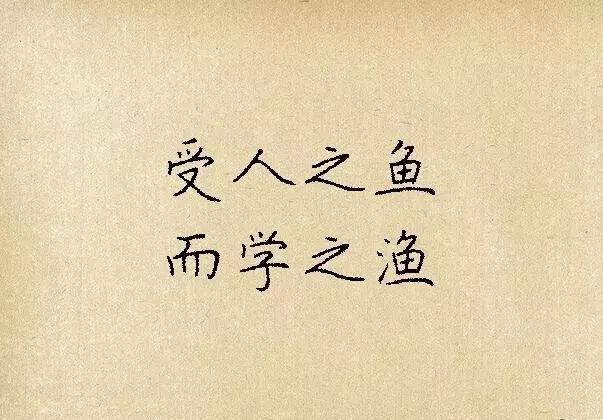 受人之鱼
而学之渔